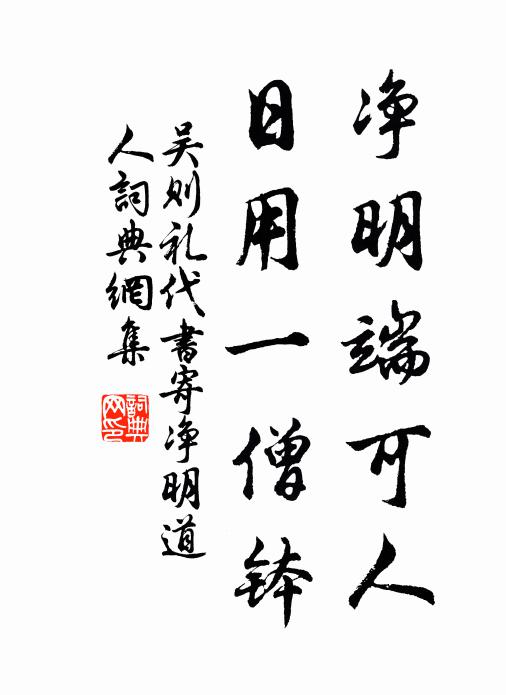 净明端可人
日用一僧钵
吴则礼代書寄净明道
人詞典網集
詞典网印